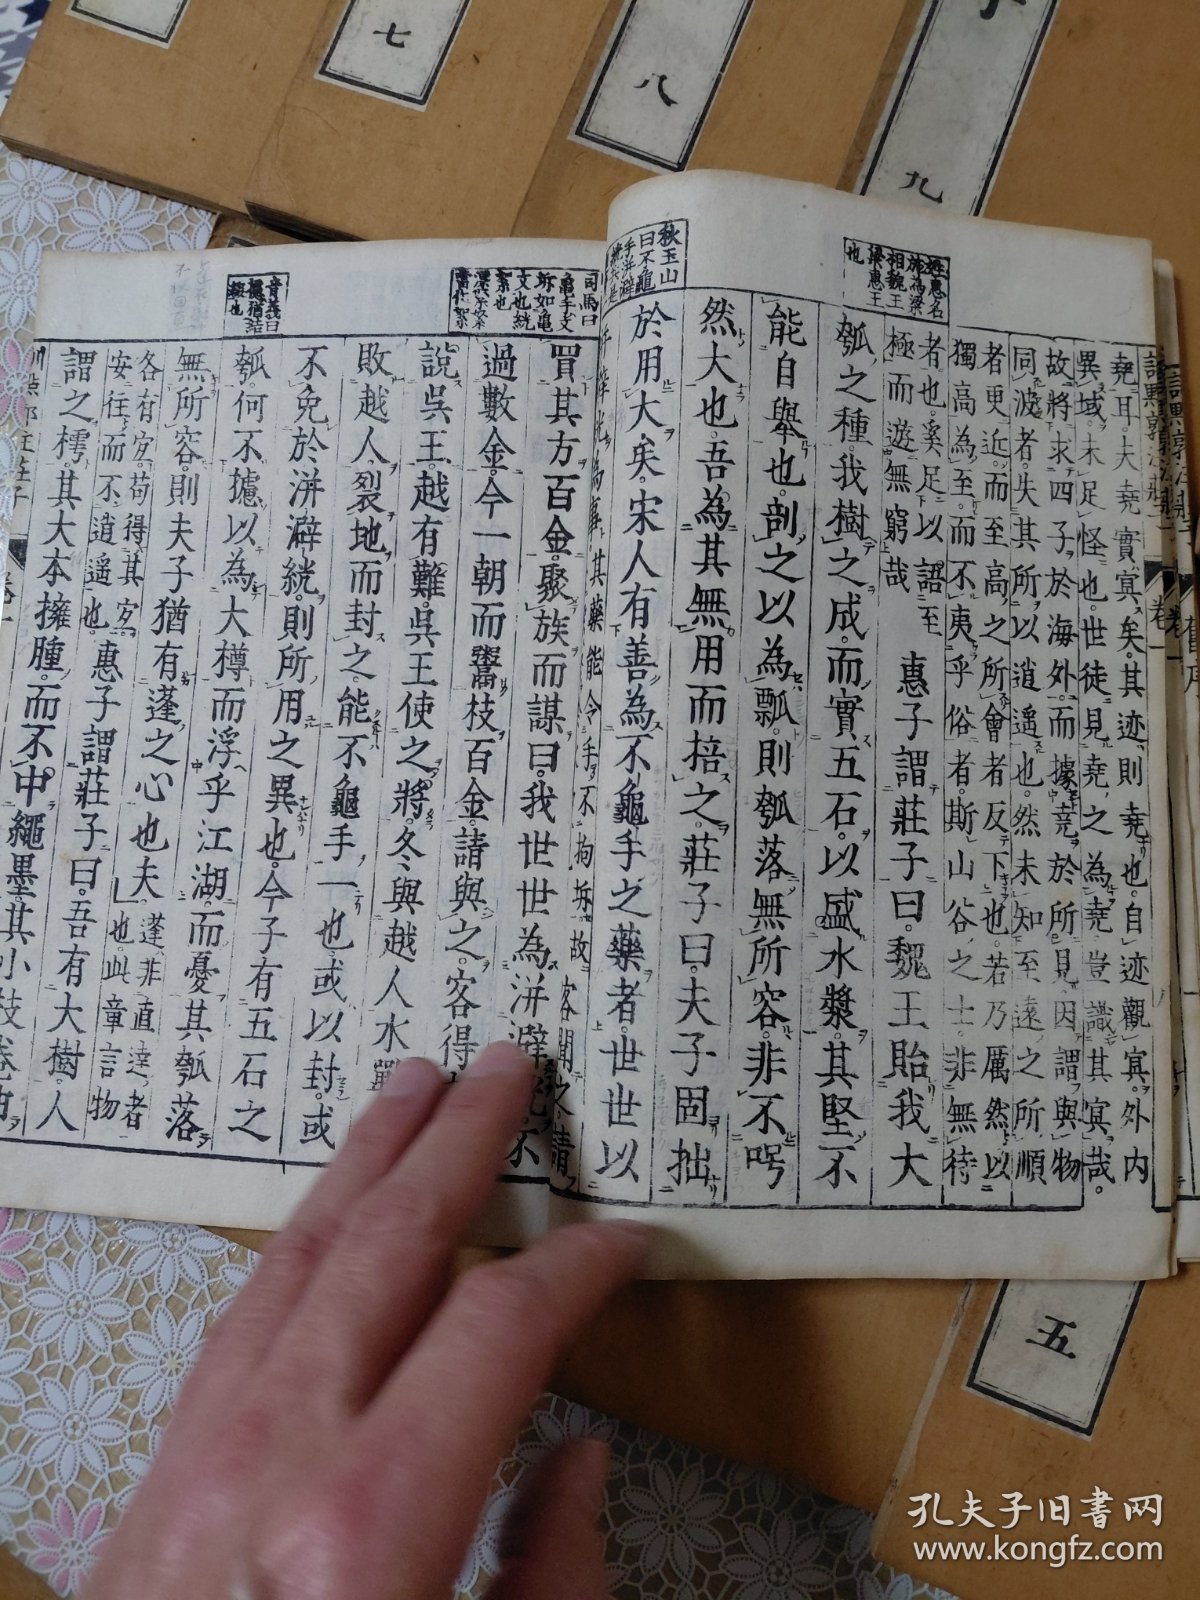 七
八
九
五
姓惠名
施為梁
相魏王
梁惠王
也
堯耳夫堯實冥矣其迹則堯也自迹觀冥外內
異域未足怪也世徒見堯之為堯豈識其冥哉
故將求四子於海外而據堯於所見因謂與物
同波者失其所以逍遙也然未知至遠之所順
者更近而至高之所會者反下也若乃厲然以
獨高為至而不夷乎俗者斯山谷之士非無待
者也奚足以語至
極而遊無窮哉
惠子謂莊子曰魏王貽我大
瓠之種我樹之成而實五石以盛水漿其堅不
能自舉也剖之以為瓢則瓠落無所容非不呺
然大也吾為其無用而掊之莊子曰夫子固拙
秋玉山
曰不龜
手洴澼
於用大矣宋人有善為不龜手之藥者世世以
為事其藥能令手不拘坼故
客聞之請
司馬曰
龜手文
坼如龜
文也絖
絮也
買其方百金聚族而謀曰我世世為洴澼絖不
過數金今一朝而鬻技百金請與之客得
說吳王越有難吳王使之將冬與越人水戰
敗越人裂地而封之能不龜手一也或以封或
不免於洴澼絖則所用之異也今子有五石之
音義曰
慮猶結
綴也
瓠何不攄以為大樽而浮乎江湖而憂其瓠落
無所容則夫子猶有蓬之心也夫
蓬非直達者
也此章言物
各有宜苟得其宜
安往而不逍遙也
惠子謂莊子曰吾有大樹人
謂之樗其大本擁腫而不中繩墨其小枝卷曲
孔夫子旧书网
www.kongfz.com